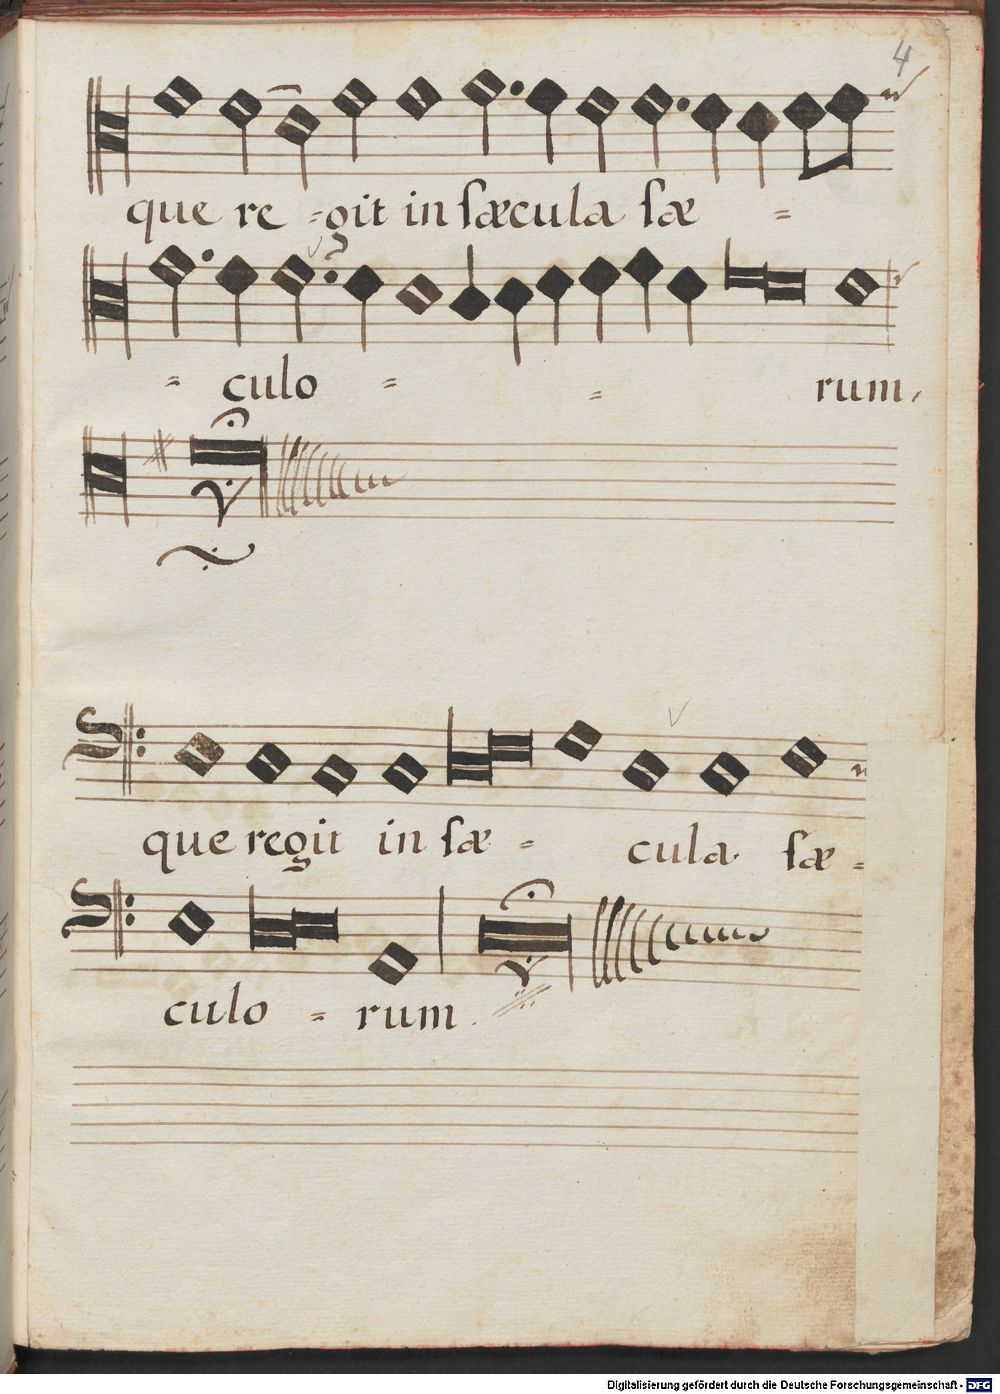 4
que re =git in sæcula sæ =
= culo = = rum,
que regit in sæ = cula sæ =
culo = rum.
Digitalisierung gefördert durch die Deutsche Forschungsgemeinschaft - DFG